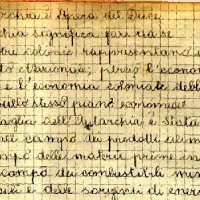 archia è opera del Duce
chia significa fare da sé
tre colonie rappresentano
to Nazionale, perciò l'econom
e l'economia coloniale debb
sullo stesso piano economico
taglia dell'Autarchia è stata
nel campo dei prodotti alimen
mpo delle materie prime in
campo dei combustibili mine
bili e delle sorgenti di ener